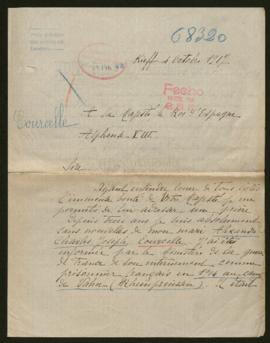 68320
Kieff 4 Octobre 1917
Fecho
Courcelle
A Sa Majesté le Roi d'Espagne
Alphonse XIII.
Sire
Ayant entendu louer de tous côtés
l'immense bonté de Votre Majesté je me
permets de lui adresser une prière
Depuis trois ans je suis absolument
sans nouvelles de mon mari Alexandre
Charles Joseph Courcelle. J'ai été
informée par le Ministère de la guerre
de France de son internement comme
prisonnier français en 1914 au camp
de (Rheinpreussen). Il était